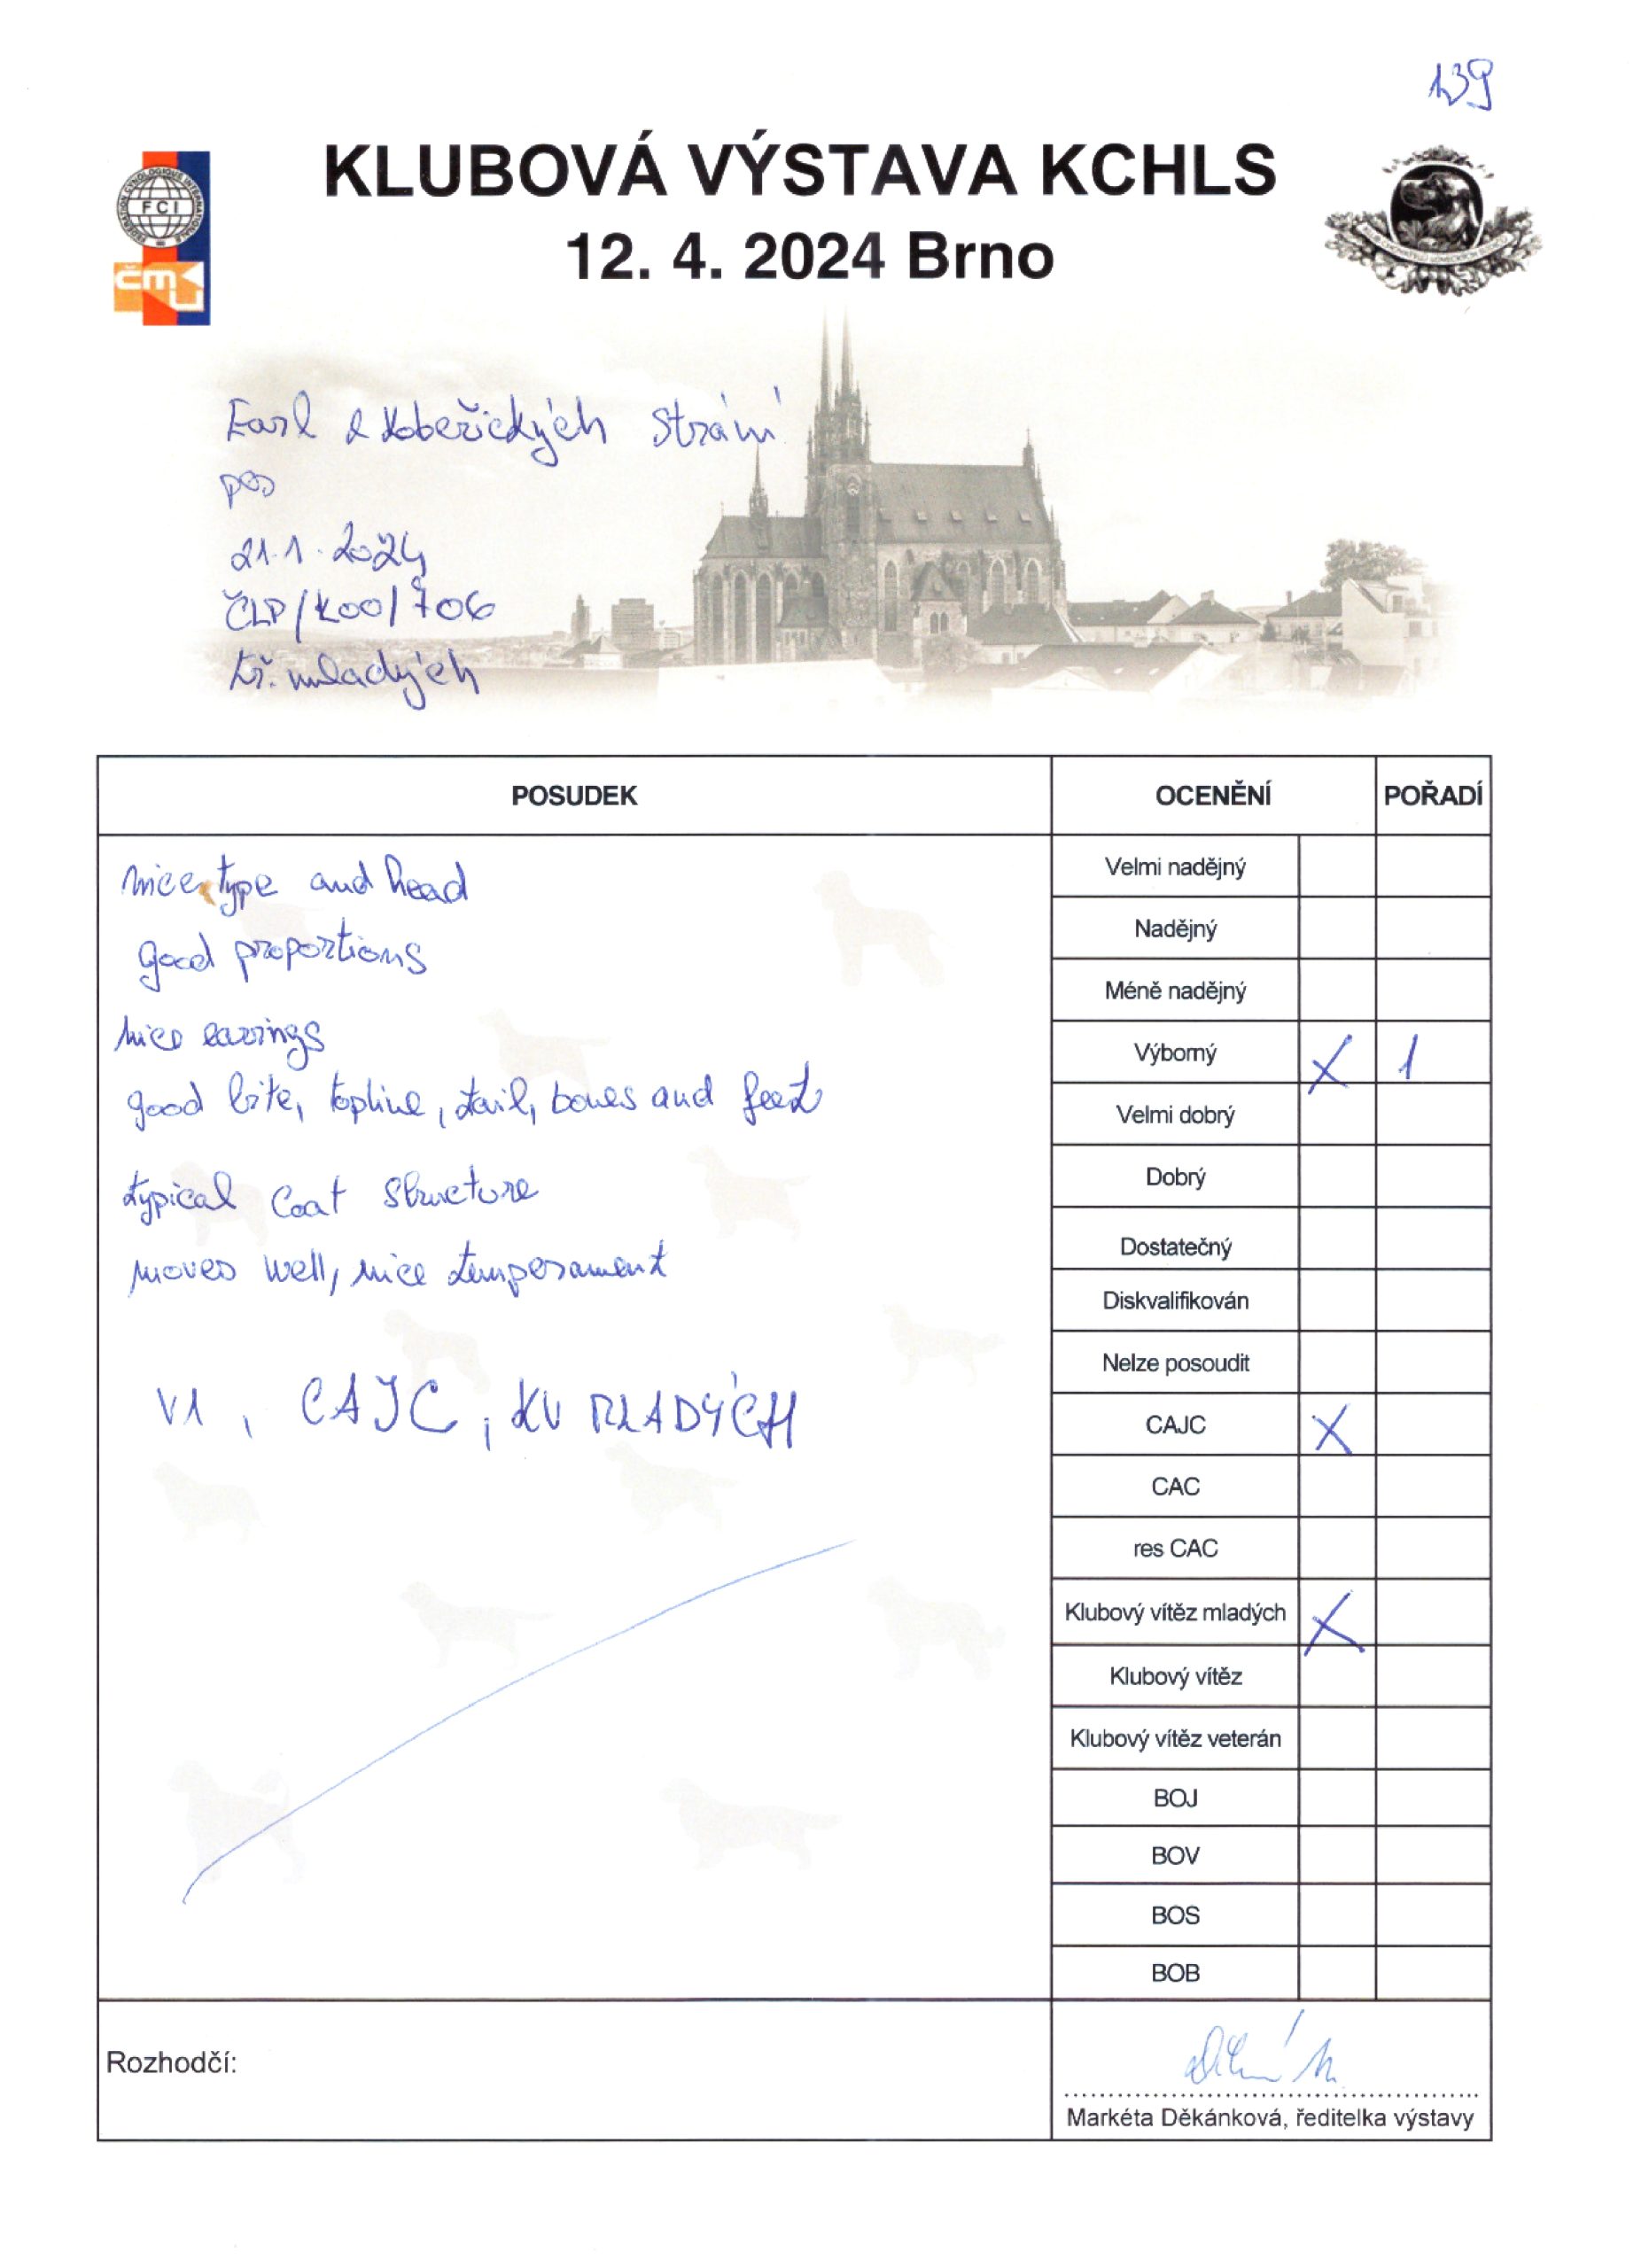 139
KLUBOVÁ VÝSTAVA KCHLS
12. 4. 2024 Brno
FEDERATION CYNOLOGIQUE INTERNATIONALE
FCI
čmku
Earl z Kobeřických Strání
pes
21.1.2024
ČLP/KOO/706
tř. mladých
POSUDEK
OCENĚNÍ
POŘADÍ
nice type and head
good proportions
nice earrings
good bite, topline, tail, bones and feet
typical coat structure
moves well, nice temperament
V1, CAJC, KV MLADÝCH
Velmi nadějný
Nadějný
Méně nadějný
Výborný X 1
Velmi dobrý
Dobrý
Dostatečný
Diskvalifikován
Nelze posoudit
CAJC X
CAC
res CAC
Klubový vítěz mladých X
Klubový vítěz
Klubový vítěz veterán
BOJ
BOV
BOS
BOB
Rozhodčí:
Markéta Děkánková, ředitelka výstavy